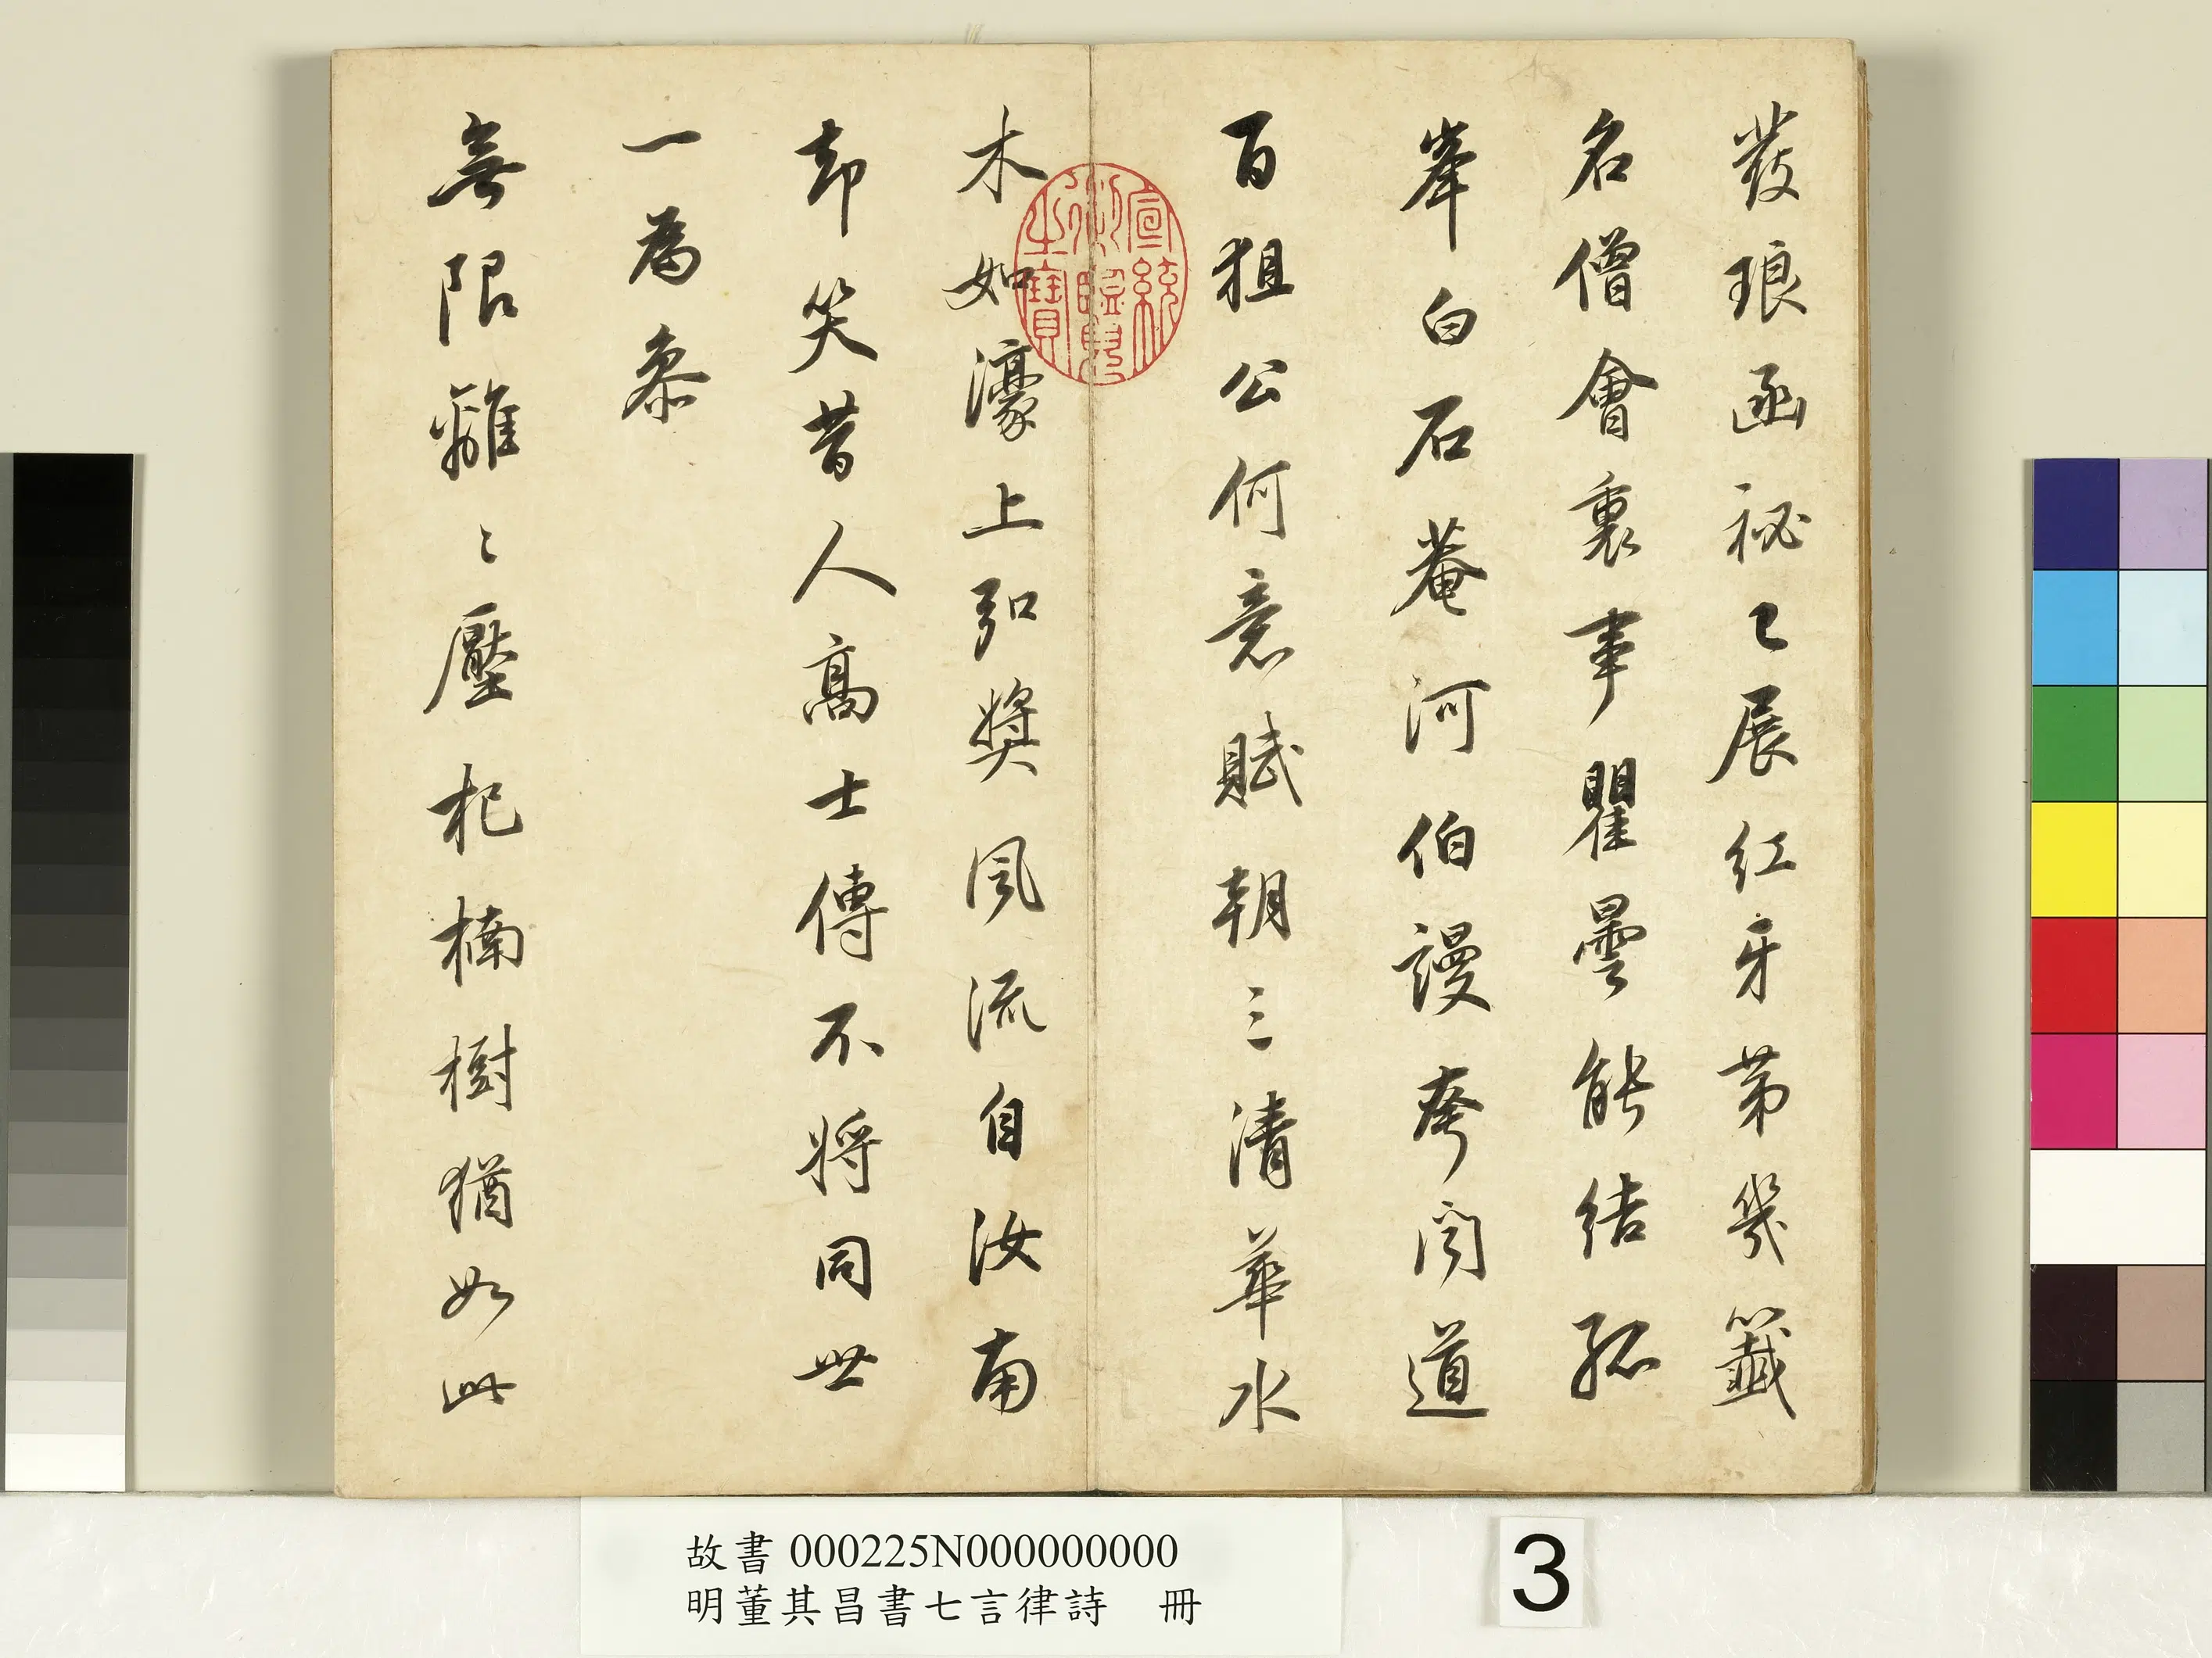 發琅函祕已展紅牙第幾籤
名僧會裏事瞿曇能結孤
峯白石菴河伯謾夸聞道
百狙公何意賦朝三清華水
木如濠上弘獎風流自汝南
却笑昔人高士傳不將同世
一為參
無限離〻壓杞楠樹猶如此
宣統御覽之寶
故書 000225N000000000
明董其昌書七言律詩 冊
3